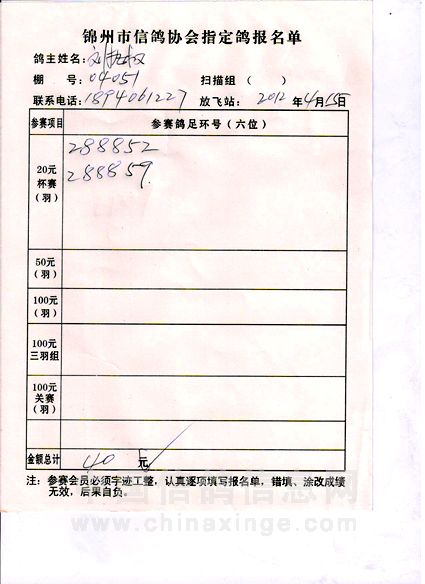 锦州市信鸽协会指定鸽报名单
鸽主姓名：刘
棚 号：04051 扫描组（ ）
联系电话：1894061227 放飞站： 2012 年4月15日
参赛项目 参赛鸽足环号（六位）
20元
杯赛
（羽）
288852
288859.
50元
（羽）
100元
（羽）
100元
三羽组
100元
关赛
（羽）
金额总计 40 元
注：参赛会员必须字迹工整，认真逐项填写报名单，错填、涂改成绩
无效，后果自负。
中国信鸽信息网
www.chinaxinge.com